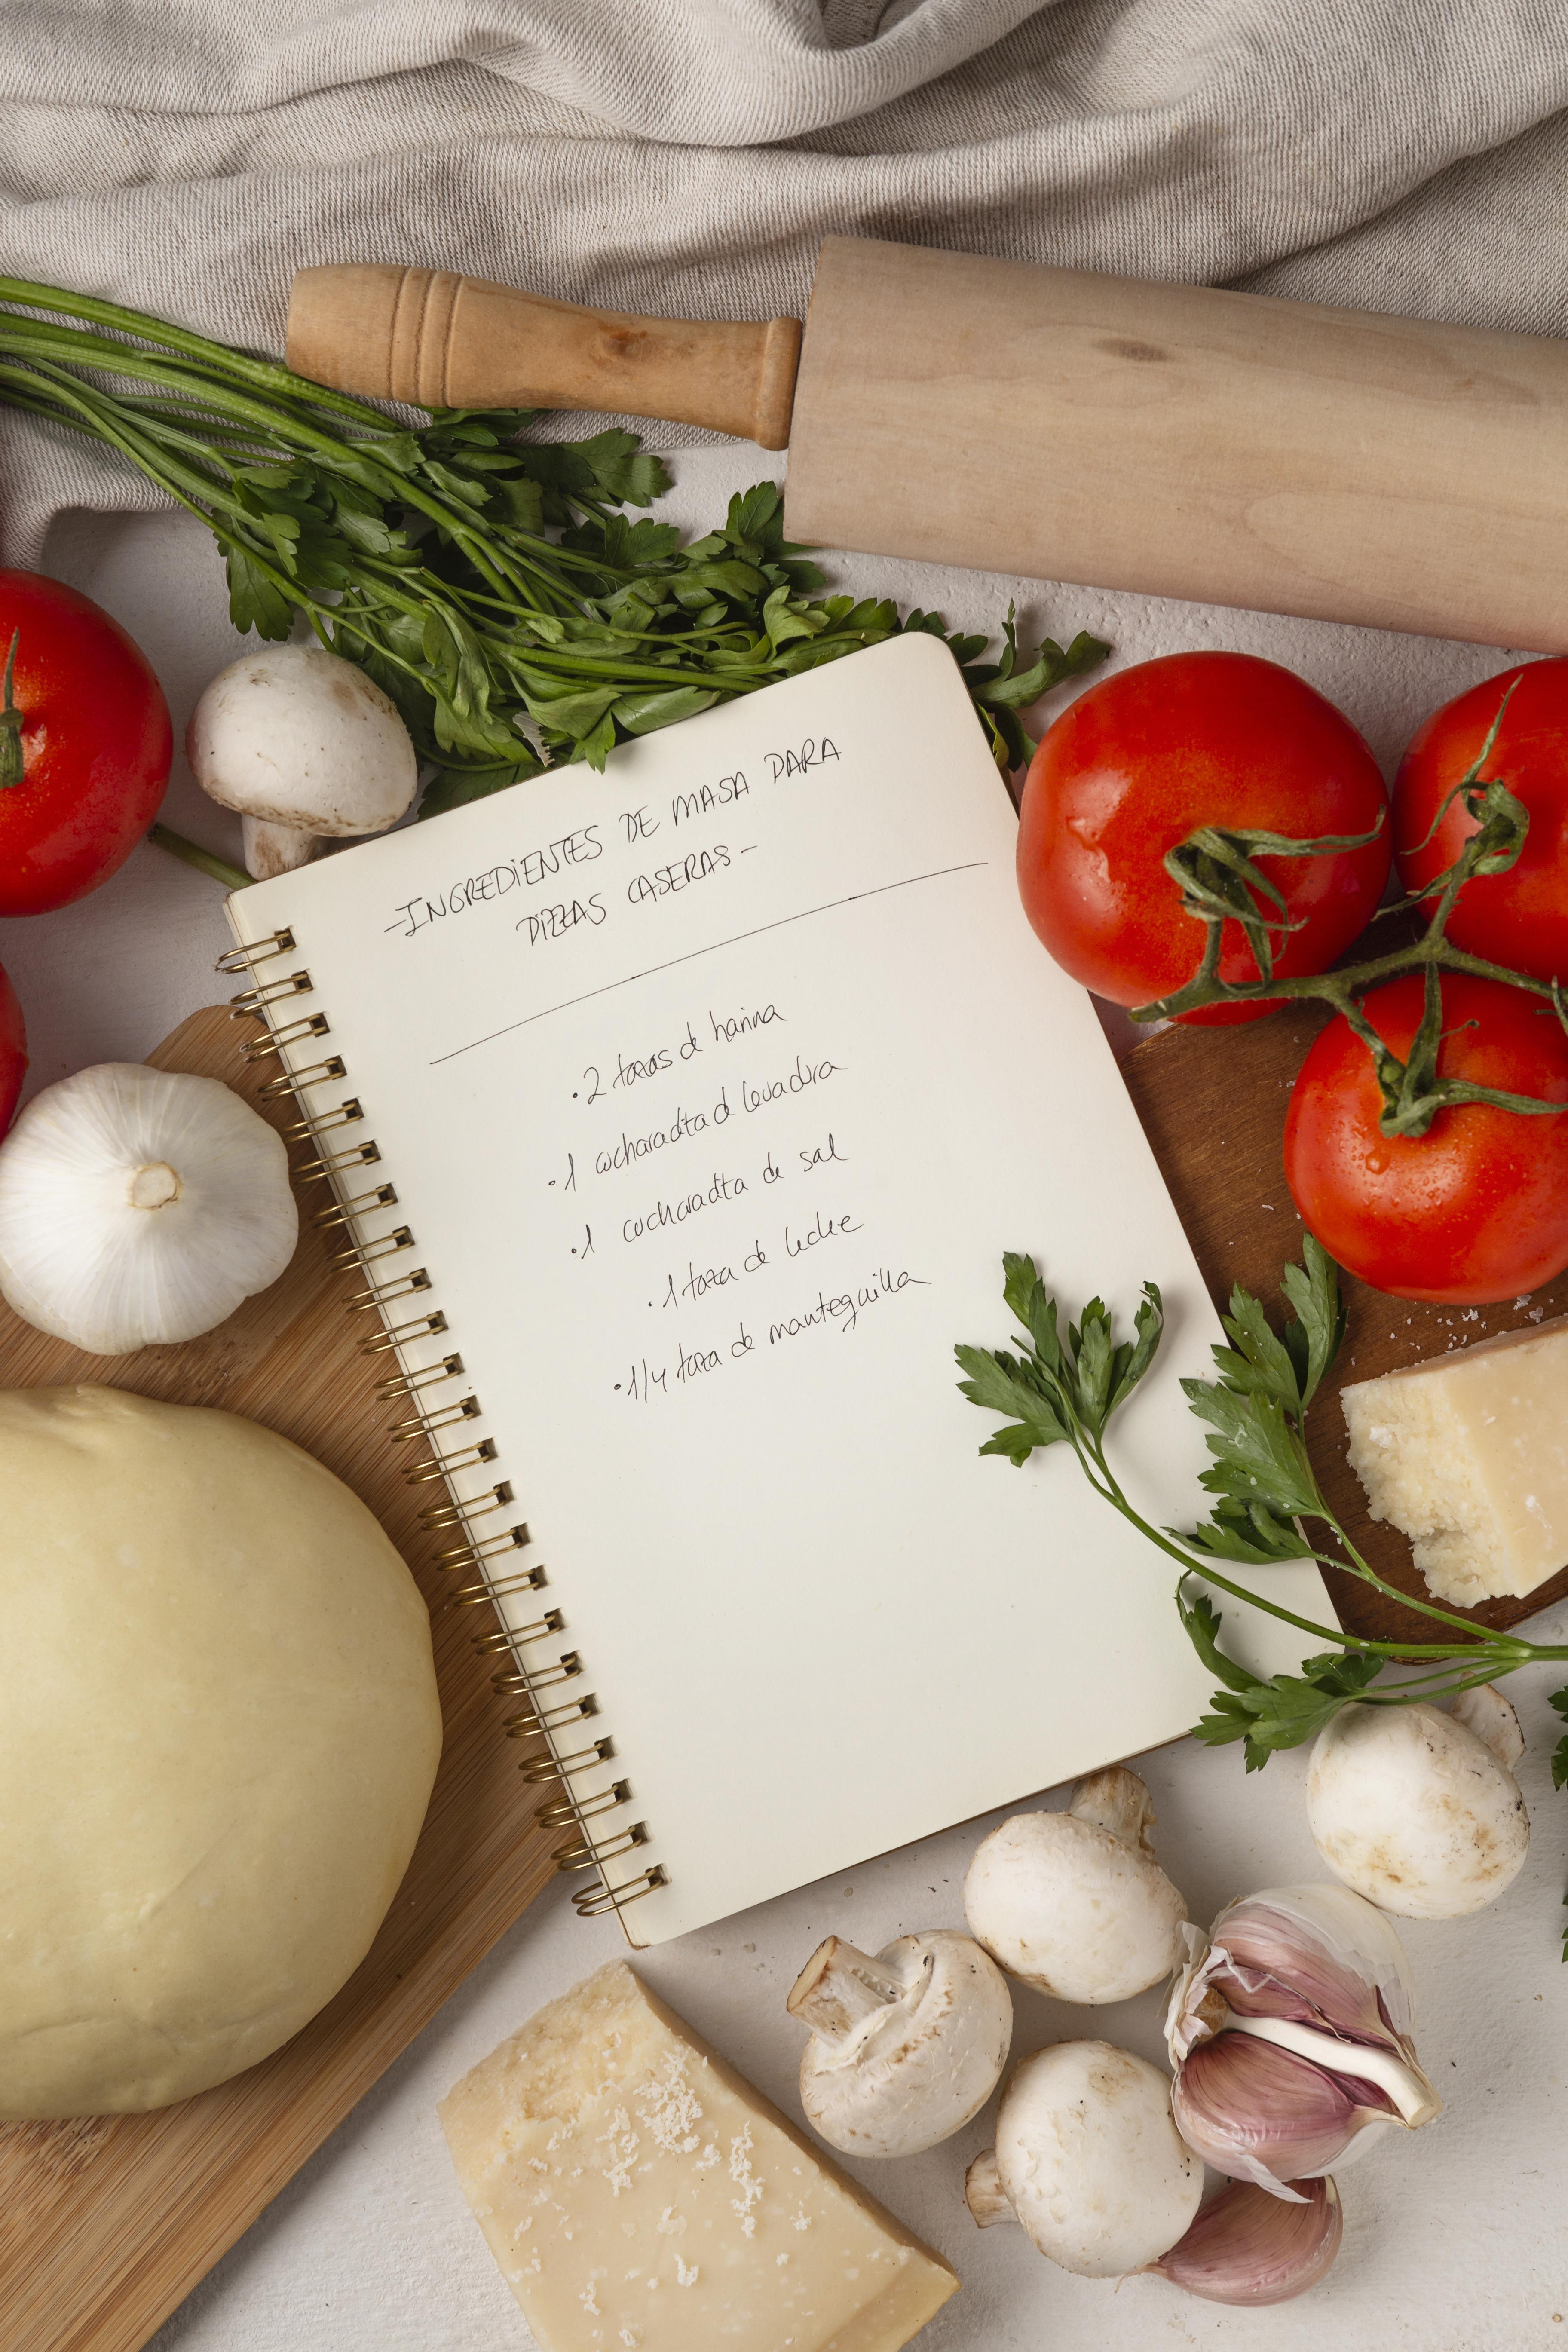 -INGREDIENTES DE MASA PARA
PIZZAS CASERAS-
·2 tazas de harina
·1 cucharadita d levadura
·1 cucharadita de sal
·1 taza de leche
·1/4 taza de mantequilla